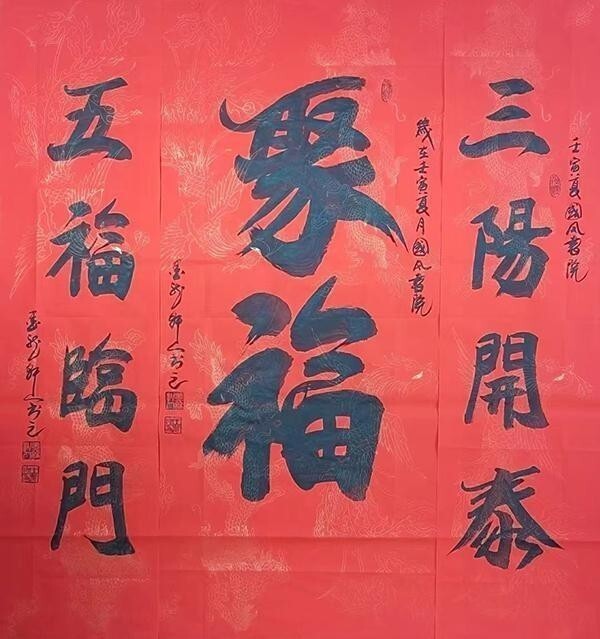 壬寅夏國風書院
三陽開泰
歲在壬寅夏月國風書院
聚福
五福臨門